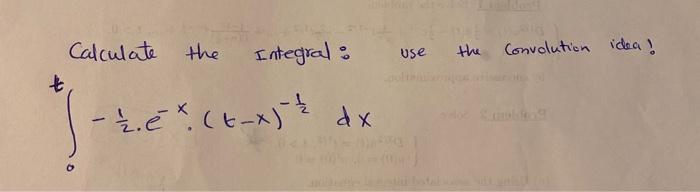 Calculate the Integral : use the Convolution idea!
t
∫ - 1/2 . e^-x . (t-x)^-1/2 dx
0